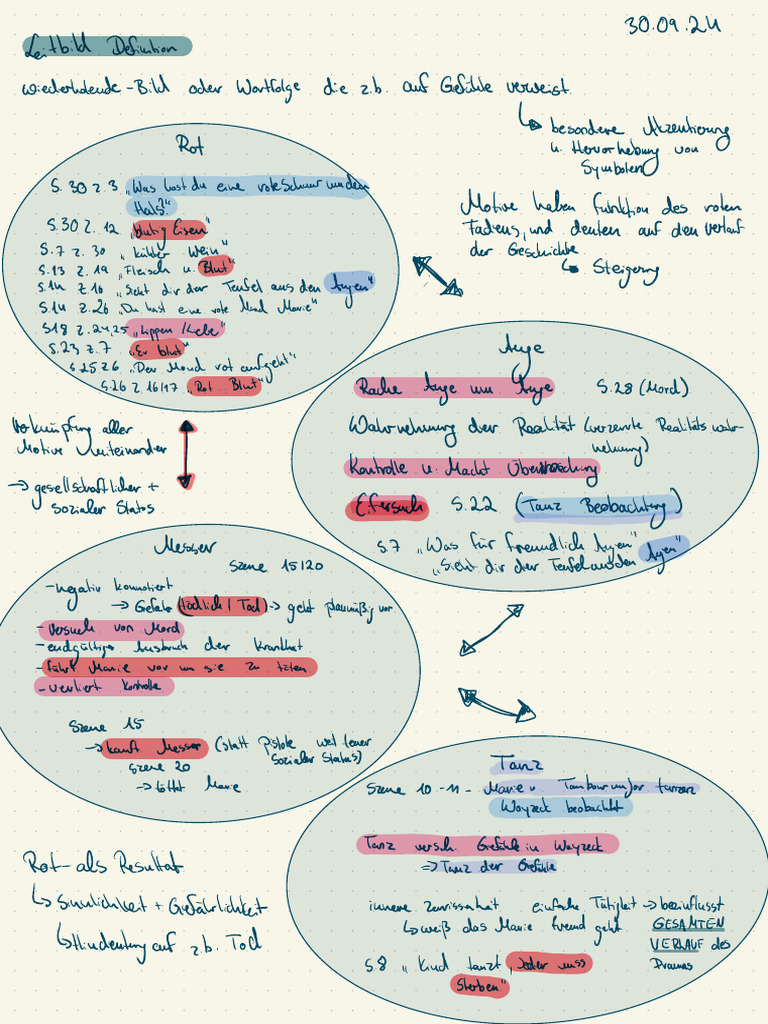 30.09.24
Leitbild Definition
wiederholende-Bild oder Wortfolge die z.b. auf Gefühle verweist.
↳ besondere Akzentuierung
u. Hervorhebung von
Symbolen
Motive haben funktion des roten
Fadens, und deuten auf den verlauf
der Geschichte
↳ Steigerung
Rot
S. 30 z. 3 „Was hast du eine rote Schnur um den
Hals?"
S.30 Z. 12 „blutig Eisen"
S. 7 z. 30 „ Wein"
S.13 z. 19 „Fleisch u. Blut"
S.14 z.10 „Sieht dir der Teufel aus den Augen"
S.14 z.26 „Du hast eine rote Mund Marie"
S18 z.24,25 „Lippen /Liebe"
S.23 z.7 „Er blut"
S25 z6 „Der Mond rot aufgeht"
S.26 z.16/17 „Rot Blut"
Auge
Rache Auge um Auge S.28 (Mord)
Wahrnehmung der Realität (verzerrte Realitätswahr-
nehmung)
Kontrolle u. Macht Überwachung
Eifersuch S.22 (Tanz Beobachtung)
S.7 „Was für freundlich Augen"
„Sieht dir der Teufel aus den Augen"
Verknüpfung aller
Motive Miteinander
→ gesellschaftlicher +
sozialer Status
Messer
Szene 15/20
-negativ konnotiert
→ Gefahr (tödlich / Tod) → geht planmäßig vor
- versuch von Mord
- endgültiger Ausbruch der Krankheit
- führt Marie vor um sie zu töten
- verliert Kontrolle
Szene 15
→ kauft Messer (statt pistole weil teuer
sozialer Status)
Szene 20
→ tötet Marie
Tanz
Szene 10-11- Marie u. Tambourmajor tanzen
Woyzeck beobachtet
Tanz versch. Gefühle in Woyzeck
→ Tanz der Gefühle
innere zerrissenheit einfache Tätigkeit → beeinflusst
↳ weiß das Marie fremd geht GESAMTEN
VERLAUF des
Dramas
S.8 „ Kind tanzt, Jeder muss
Sterben"
Rot- als Resultat
↳ Sinnlichkeit + Gefährlichkeit
↳ Hindeutung auf z.b. Tod